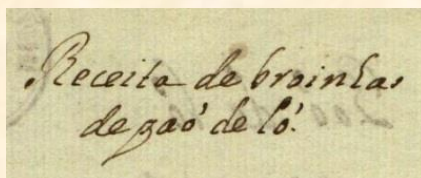 Receita de broinhas
de paó de ló.